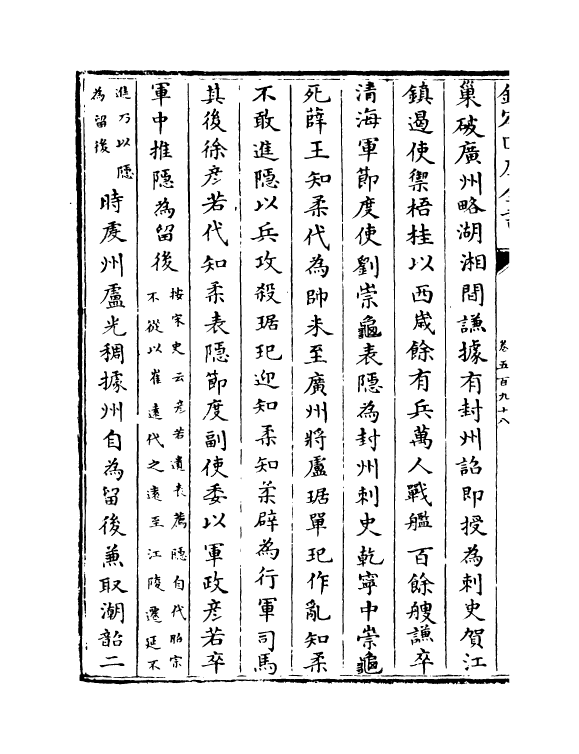 卷五百九十八
巢破廣州略湖湘間謙據有封州詔即授為刺史賀江
鎮遏使禦梧桂以西歲餘有兵萬人戰艦百餘艘謙卒
清海軍節度使劉崇龜表隱為封州刺史乾寧中崇龜
死薛王知柔代為帥未至廣州將盧琚單玘作亂知柔
不敢進隱以兵攻殺琚玘迎知柔知柔辟為行軍司馬
其後徐彦若代知柔表隱節度副使委以軍政彦若卒
軍中推隱為留後按宋史云彦若遺表薦隱自代昭宗
不從以崔遠代之遠至江陵遷延不
進乃以隱
為留後
時䖍州盧光稠據州自為留後兼取潮韶二